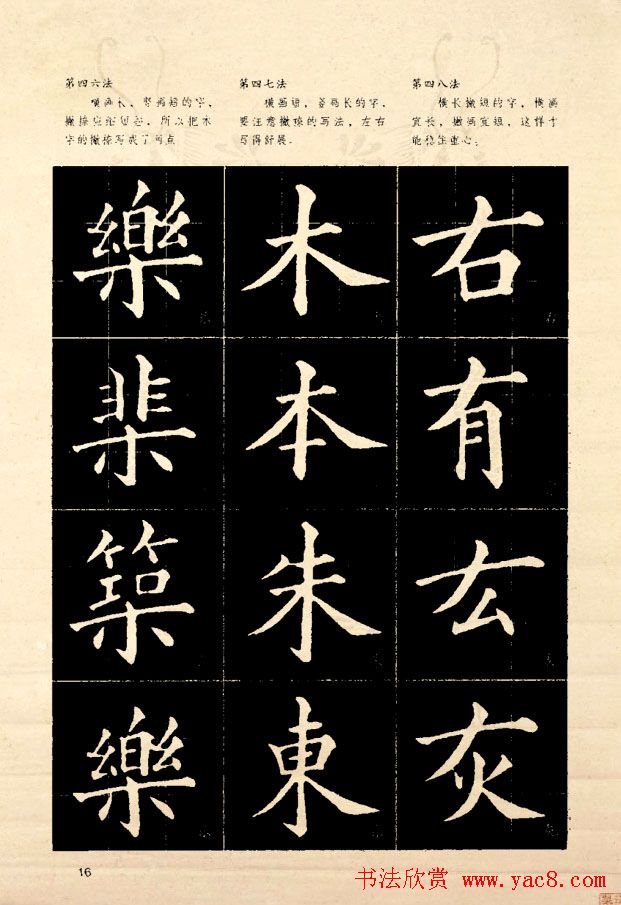 第四六法
横画长、竖画短的字,
撇捺应缩短些。所以把木
字的撇捺写成了两点
第四七法
横画短,竖画长的字,
要注意撇捺的写法,左右
写得舒展。
第四八法
横长撇短的字,横画
宜长,撇画宜短,这样才
能稳住重心。
樂 木 右
棐 本 有
築 朱 厷
樂 東 灰
16
书法欣赏 www.yac8.com